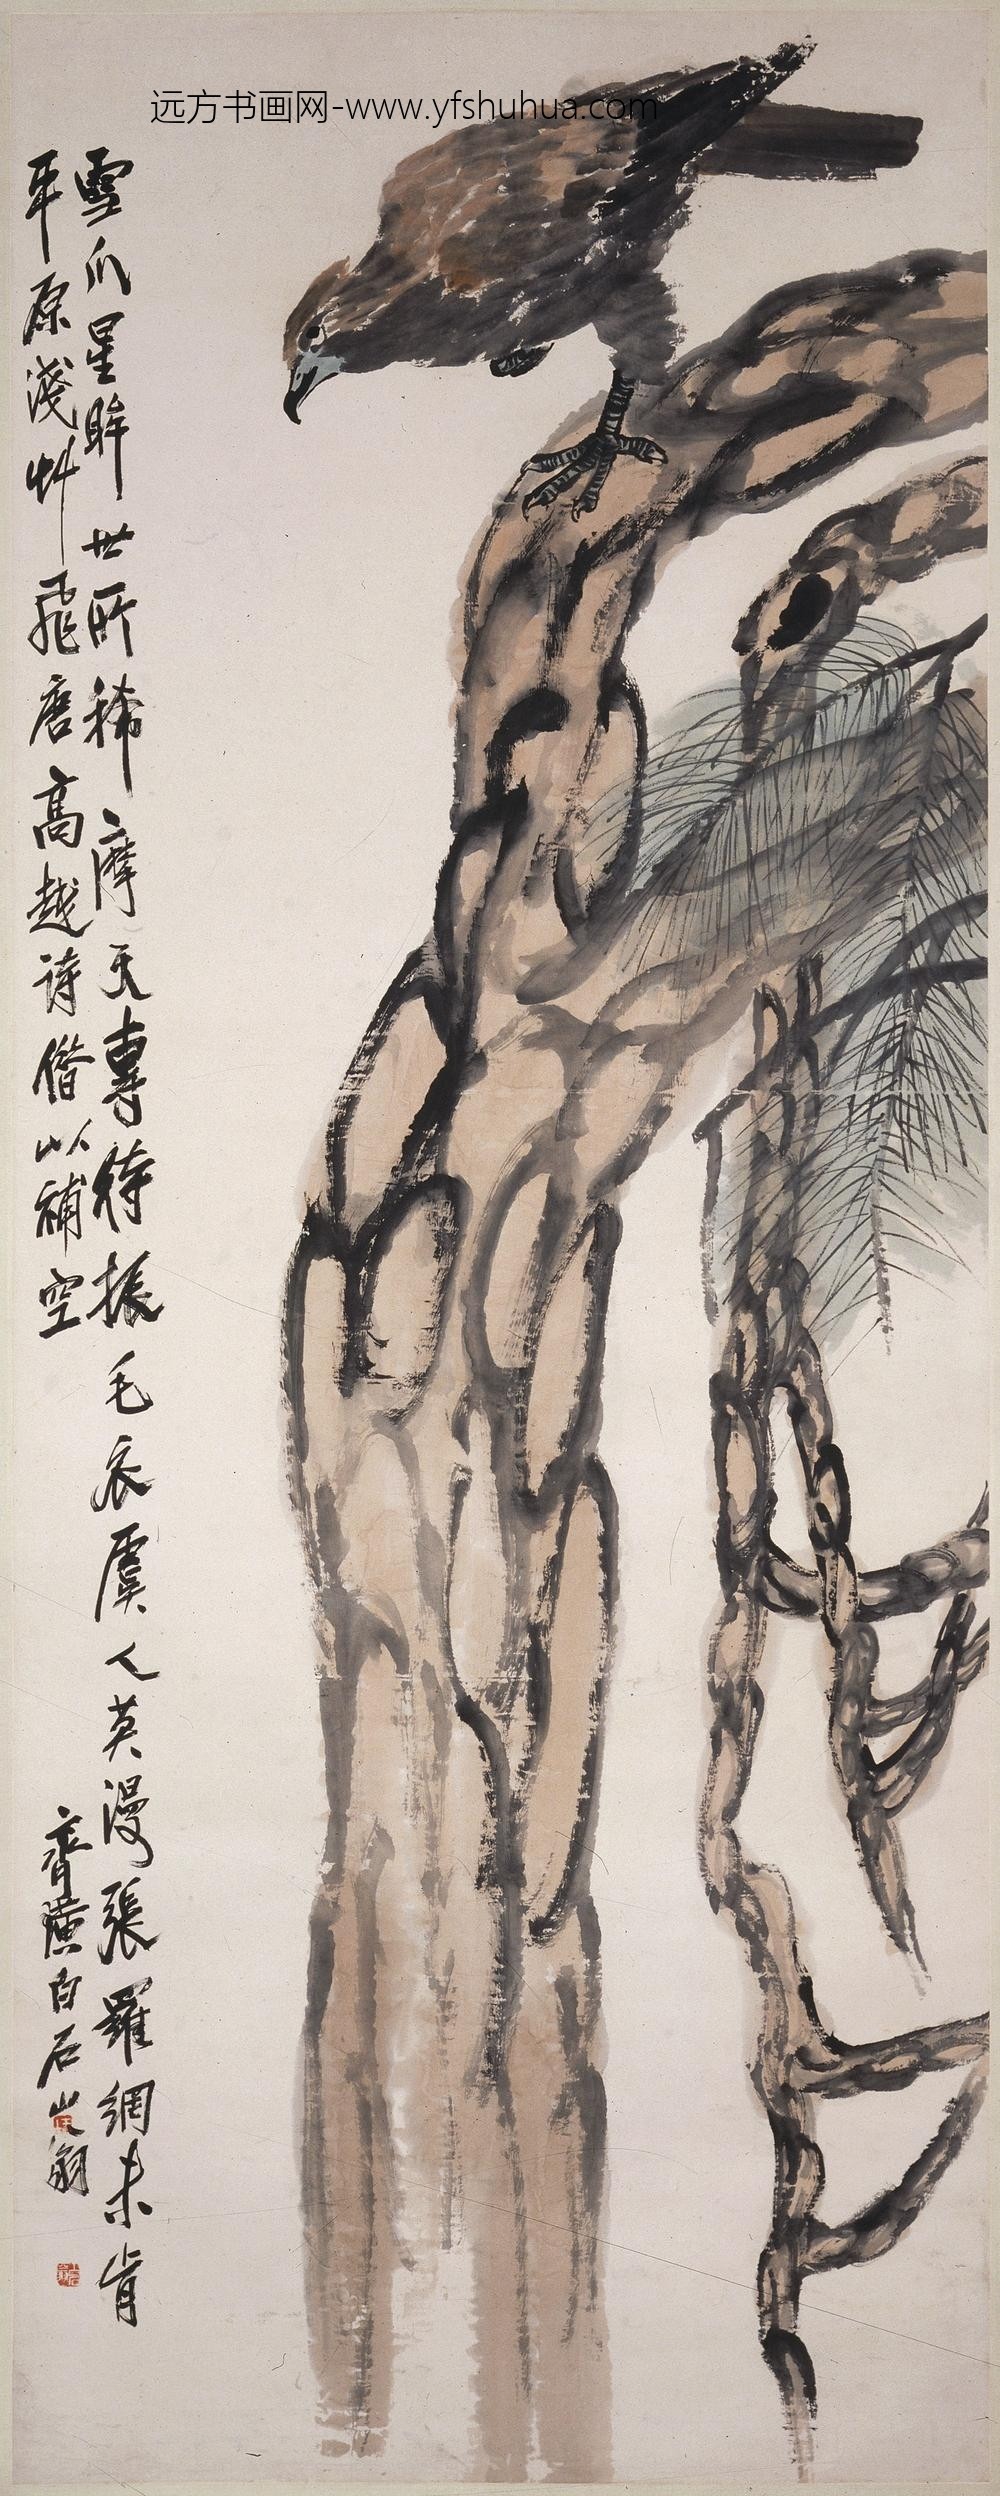 远方书画网-www.yfshuhua.com
雪爪星眸世所稀摩天專待振毛衣虞人莫漫張羅網未肯
平原淺艸飛唐高越詩借以補空
齊璜白石山翁